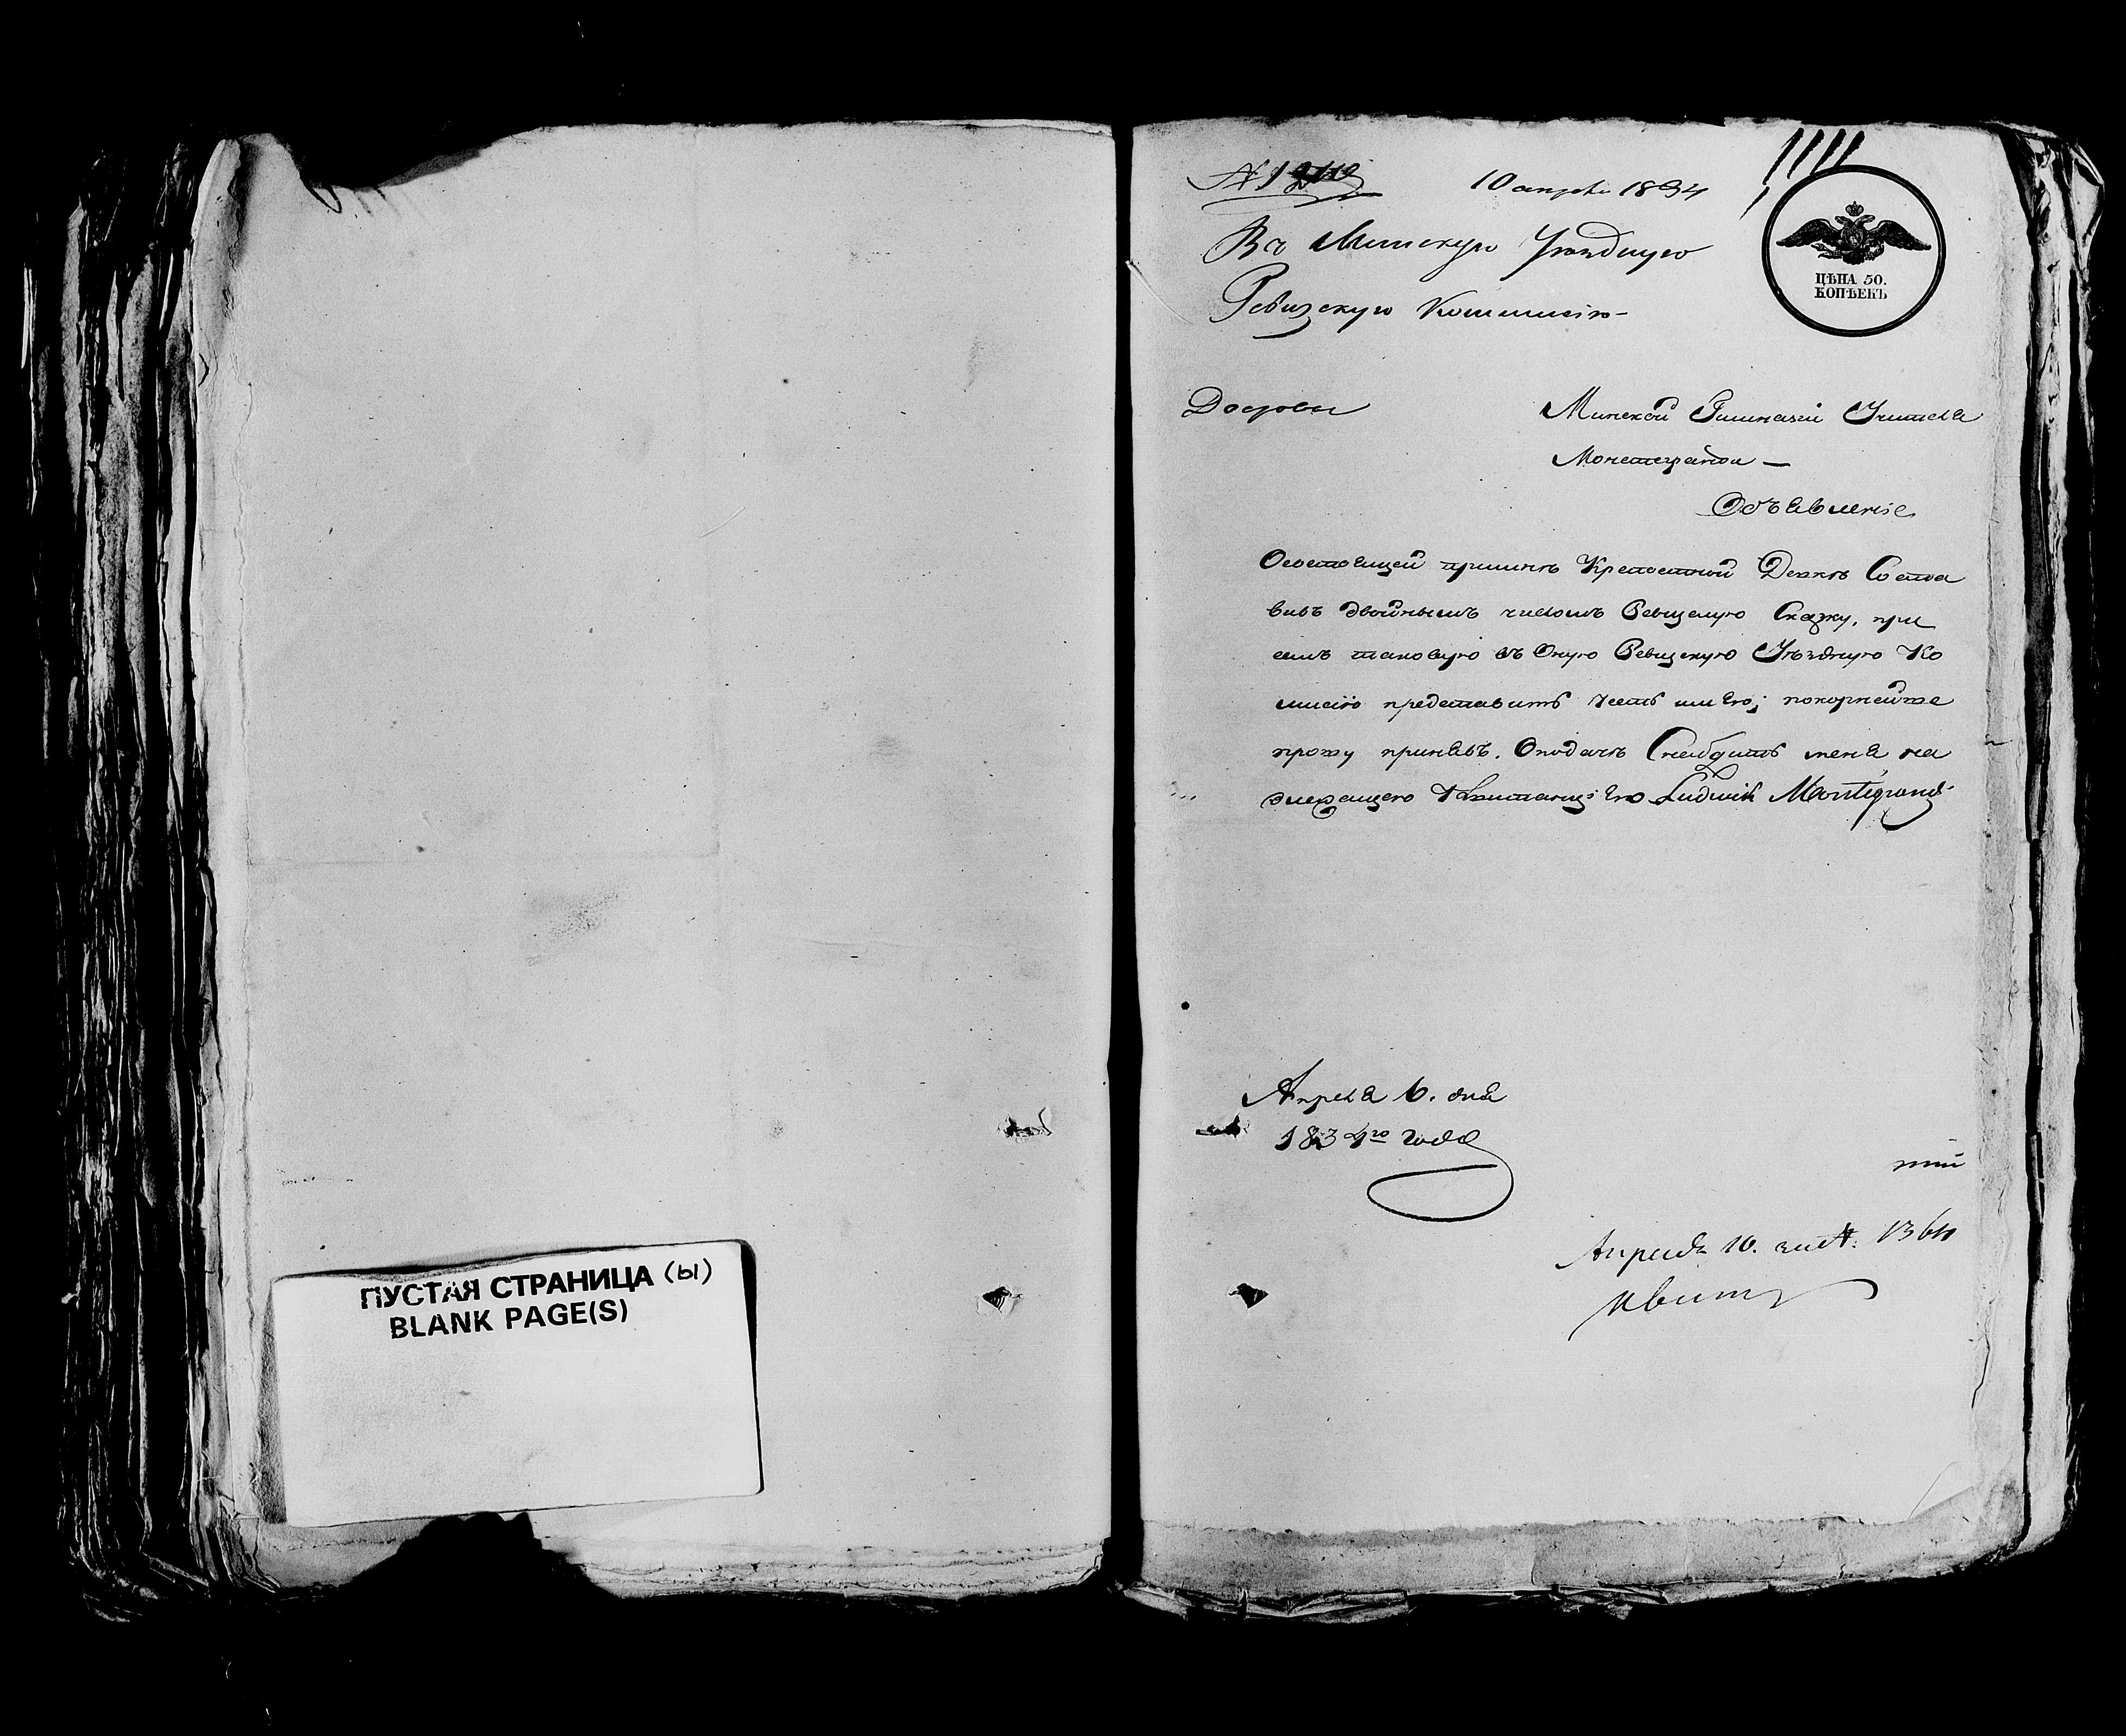 ПУСТАЯ СТРАНИЦА (Ы)
BLANK PAGE(S)
10 апреля 1834
Въ Минскую Уѣздную
Ревизскую Коммисію
ЦѢНА 50.
КОПѢЕКЪ
Минской Гимназіи Учителя
Монтегранди
Объявленіе
Осостоящей при мнѣ Крепостной Девкѣ Соста
вивъ двойнымъ числомъ Ревизскую Сказку, при
семъ таковую въ Оную Ревизскую Уѣздную Ко
мисію представить честь имѣю; покорнейше
прошу принявъ. Оподачѣ Снабдить меня на
длежащею Квитанціею Ludwik Montegrandi
Апреля 6. дня
1834го года
Апреля 10.